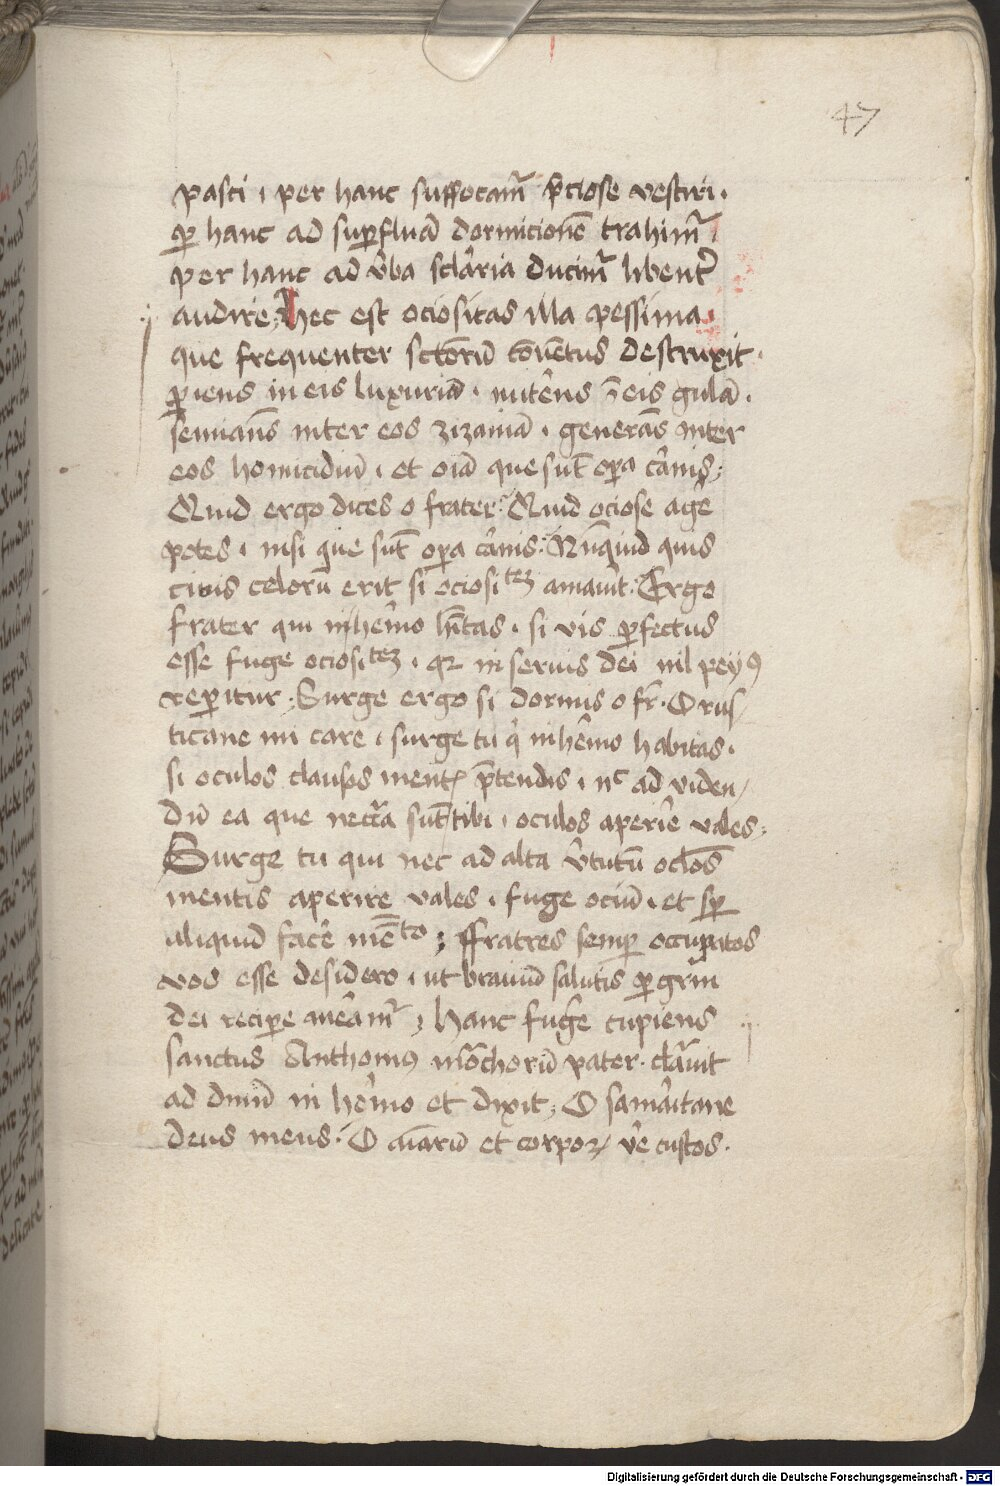 47
pasci · per hanc suffocam̃ p̃ciose vestiri ·
ꝑ hanc ad suꝑfluã dormicionẽ trahim̃ ·
per hanc ad v̓ba sclãria ducim̃ libent̓
audire; Hec est ociositas illa pessima ·
que frequenter sctõrũ cõuẽtus destruxit ·
ꝑiens in eis luxuriã · nut̓ens ĩ eis gulã ·
semianãs inter eos zizaniã · generãs inter
eos homicidiũ · et oĩa que sũt oꝑa cãnis;
Quid ergo dices o frater · Quid ociose age̓
potes · nisi que sũt oꝑa cãnis · Nũquid quis
ciuis celorũ erit si ociosi tez amauit · Ergo
frater qui in he̓mo hĩtas · si vis ꝑfectus
esse fuge ociosi tez · qꝛ in seruis dei nil peyꝰ
reꝑitur; Surge ergo si dormis o fr̃ · O rus/
ticane mi care · surge tu q̓ in he̓mo habitas ·
si oculos clausos ment̃ p̃tendis · nc ad viden/
dũ ea que necc̃ia sũt tibi · oculos aperi̓e vales;
Surge tu qui nec ad alta v̓tutũ oclõs
mentis aperire vales · fuge ociũ · et sꝑ
aliquid face̓ mẽto; ffratres semꝑ occupatos
vos esse desidero · ut brauiũ salutis ꝑ grãm
dei reciꝑe aueãm̃; Hanc fuge̓ cupiens
sanctus Anthoniꝰ mõchorũ pater · clãuit
ad dnũm in he̓mo et dixit; O samãitane
deus meus · O aĩarũ et corpoꝝ ve̓ custos ·
Digitalisierung gefördert durch die Deutsche Forschungsgemeinschaft - DFG